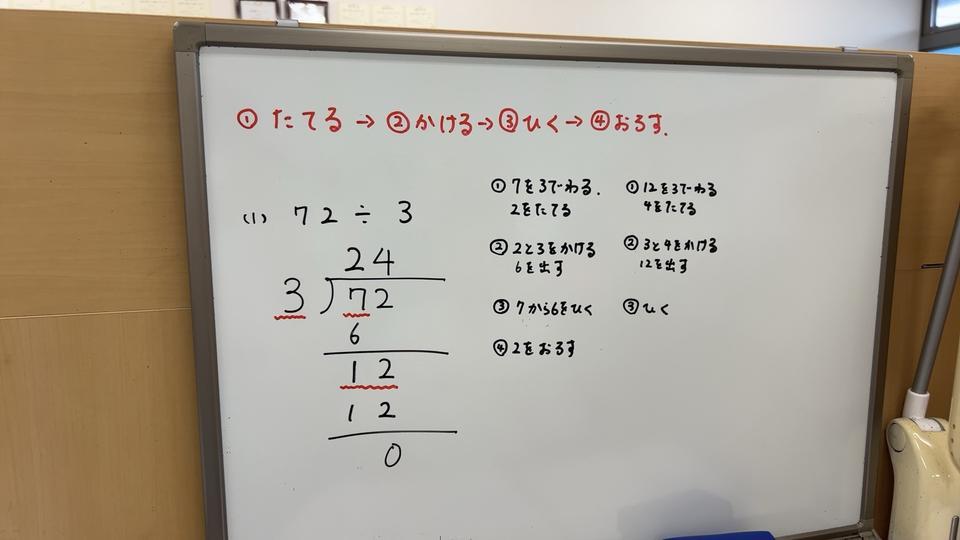 ① たてる → ② かける → ③ ひく → ④ おろす.
(1) 72 ÷ 3
24
3)72
6
12
12
0
① 7を3でわる.
2をたてる
② 2と3をかける
6を出す
③ 7から6をひく
④ 2をおろす
① 12を3でわる
4をたてる
② 3と4をかける
12を出す
③ ひく